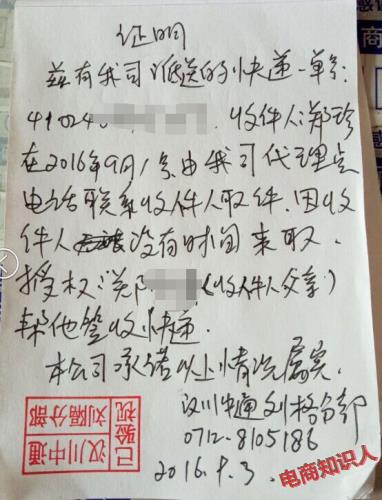 证明
兹有我司派送的快递单号:
49024 收件人:郑珍
在2016年9月1号由我司代理点
电话联系收件人取件,因收
件人没有时间来取,
授权郑(收件人父亲)
帮他签收快递.
本公司承诺以上情况属实.
汉川中通刘隔分部
0712-8105186
2016.9.3.
汉川中通
刘隔分部
已验视
电商知识人